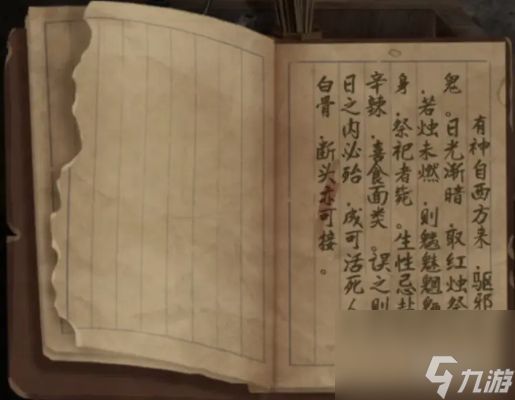 有神自西方来，驱邪
鬼。日光渐暗，取红烛祭
，若烛未燃，则魑魅魍魉
身，祭祀者毙。生性忌盐
辛辣，喜食面类。误之则
日之内必殆，成可活死人
白骨，断头亦可接。
九游